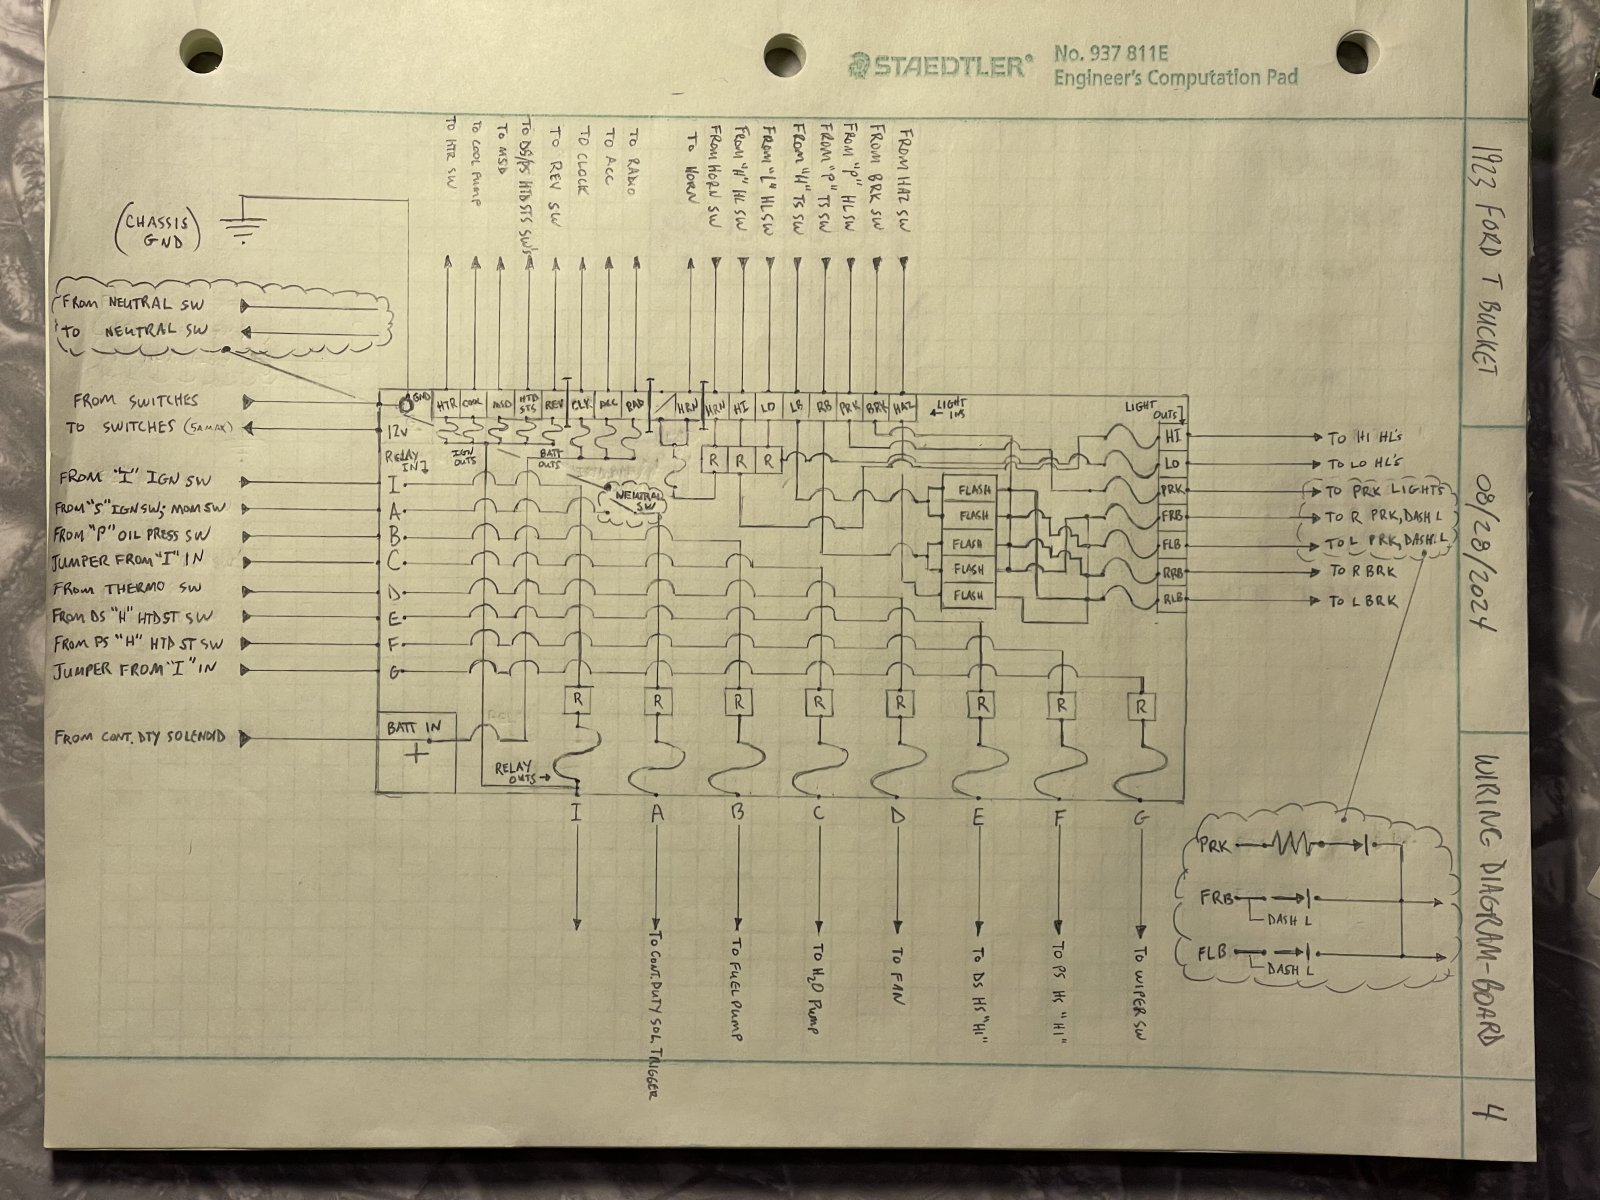 STAEDTLER®
No. 937 811E
Engineer's Computation Pad
1923 FORD T BUCKET
08/28/2024
WIRING DIAGRAM-BOARD
4
TO HTR SW
TO COOL PUMP
TO MSD
TO DS/PS HTD STS SW'S
TO REV SW
TO CLOCK
TO ACC
TO RADIO
TO HORN
FROM HORN SW
FROM "H" HL SW
FROM "L" HL SW
FROM "H" TS SW
FROM "P" TS SW
FROM "P" HL SW
FROM BRK SW
FROM HAZ SW
(CHASSIS
GND)
FROM NEUTRAL SW
TO NEUTRAL SW
FROM SWITCHES
TO SWITCHES (5A MAX)
FROM "I" IGN SW
FROM "S" IGN SW; MOM SW
FROM "P" OIL PRESS SW
JUMPER FROM "I" IN
FROM THERMO SW
FROM DS "H" HTD ST SW
FROM PS "H" HTD ST SW
JUMPER FROM "I" IN
FROM CONT. DTY SOLENOID
GND
HTR
COOL
MSD
HTD
STS
REV
CLK
ACC
RAD
HRN
HRN
HI
LO
LB
RB
PRK
BRK
HAZ
LIGHT
INS
LIGHT
OUTS
12V
RELAY
IN
IGN
OUTS
BATT
OUTS
R R R
NEUTRAL
SW
I
A
B
C
D
E
F
G
FLASH
FLASH
FLASH
FLASH
FLASH
HI
LO
PRK
FRB
FLB
RRB
RLB
TO HI HL'S
TO LO HL'S
TO PRK LIGHTS
TO R PRK, DASH L
TO L PRK, DASH L
TO R BRK
TO L BRK
BATT IN
+
R R R R R R R R
RELAY
OUTS
I A B C D E F G
TO CONT. DUTY SOL. TRIGGER
TO FUEL PUMP
TO H2O PUMP
TO FAN
TO DS HS "HI"
TO PS HS "HI"
TO WIPER SW
PRK
FRB
DASH L
FLB
DASH L